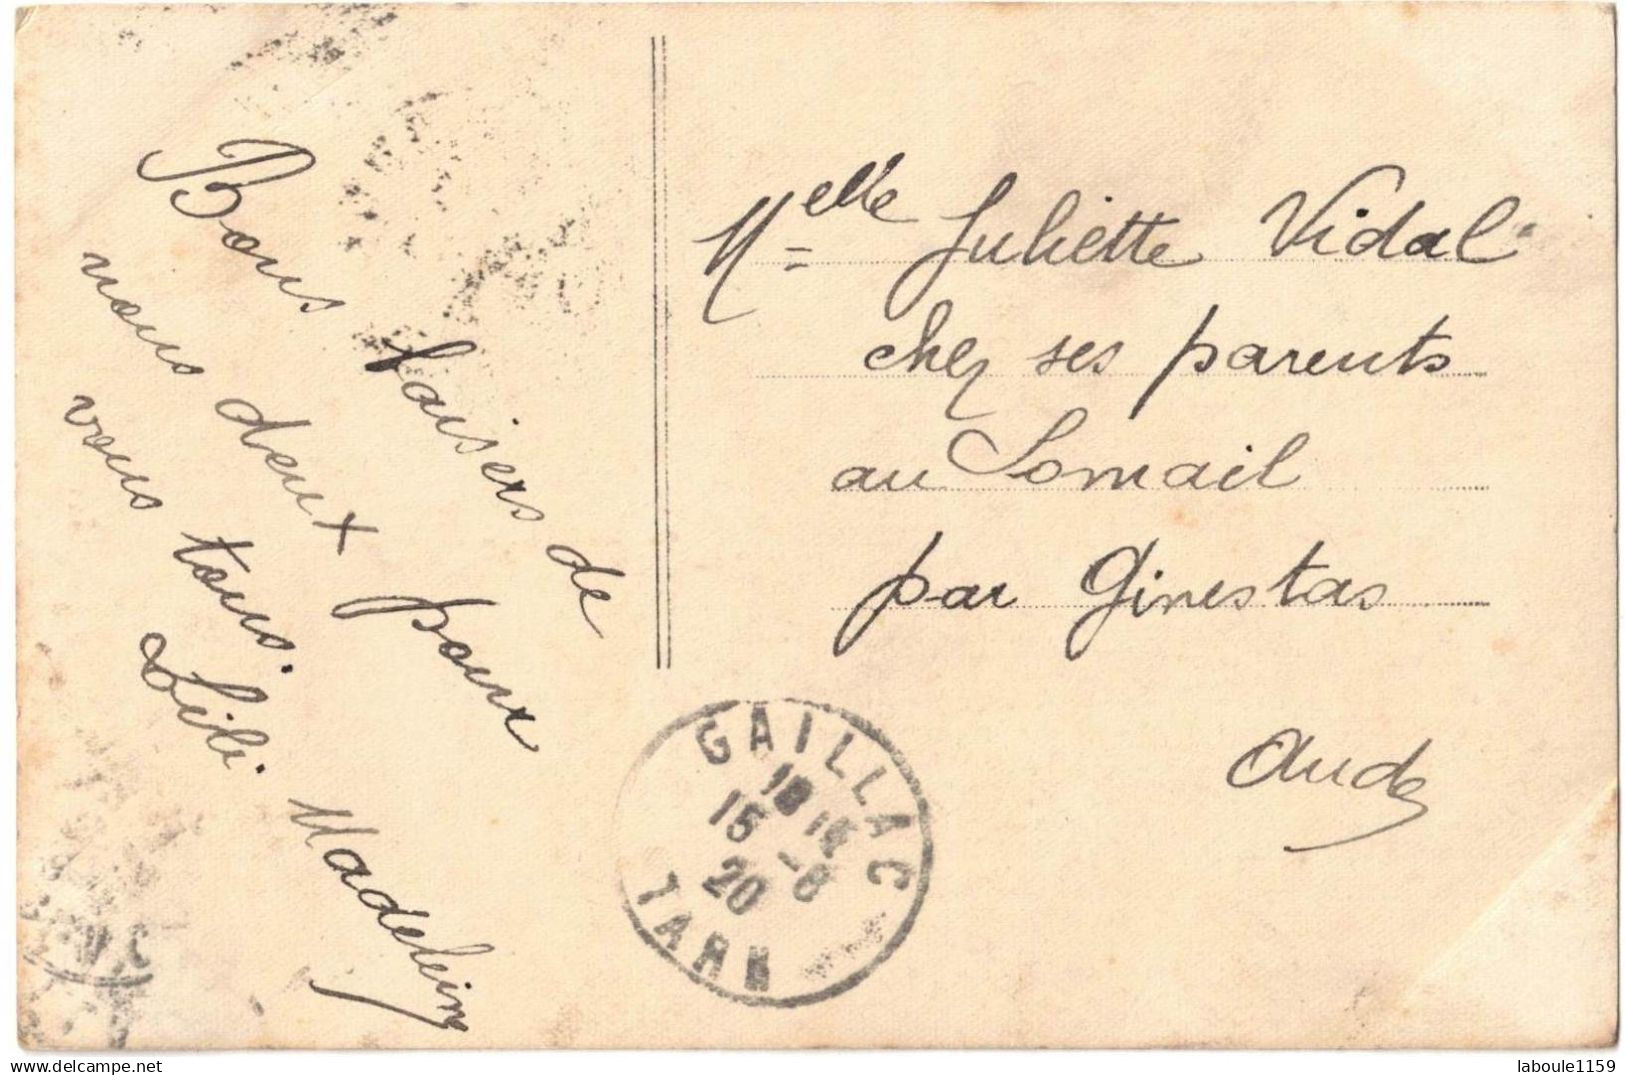 Bons baisers de
nous deux pour
vous tous.
Lili. Madeleine
Melle Juliette Vidal
chez ses parents
au Somail
par Ginestas
Aude
GAILLAC
18 15
15 -8
20
TARN
laboule1159